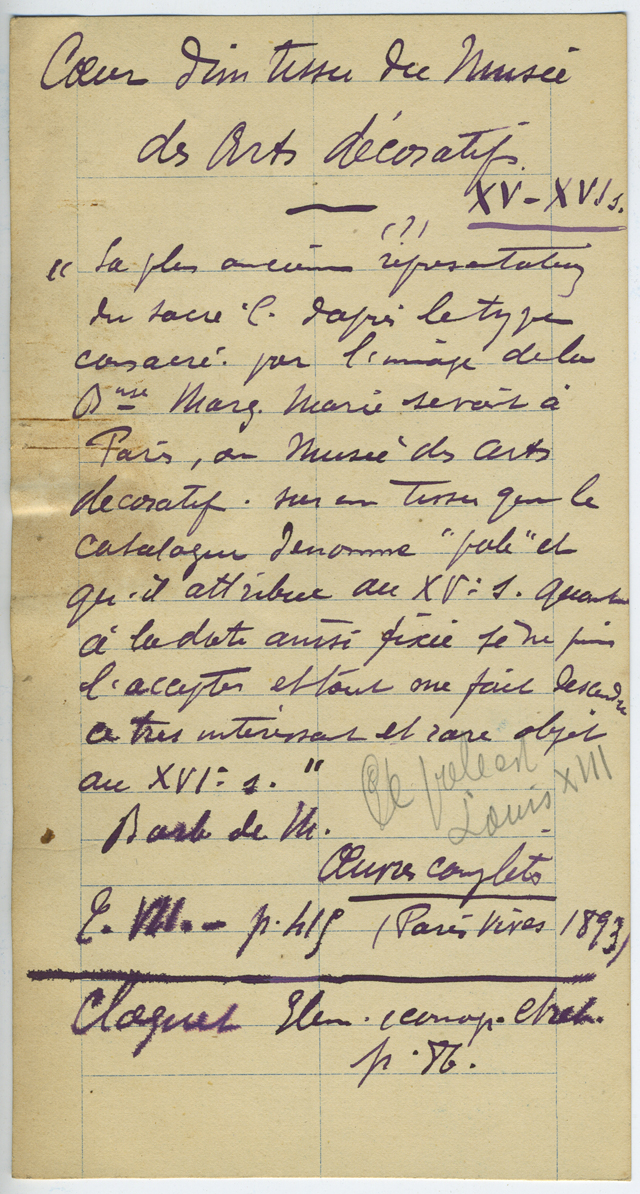 Cœur d'un tissu du Musée
des Arts décoratifs
XV-XVI s.
(?)
"La plus ancienne représentation
du sacré C. d'après le type
consacré par l'image de la
Bse Marg. Marie serait à
Paris, au Musée des Arts
décoratifs. sur un tissu que le
catalogue dénomme "voile" et
qu'il attribue au XVe s. quant
à la date aussi fixée je ne puis
l'accepter et tout me fait descendre
ce très intéressant et rare objet
au XVIe s."
Ce voile est
Louis XIII
Barb de M.
Œuvres complètes
T. VII. - p. 415 (Paris Vivès 1893)
Cloquet Elem. iconog. chret.
p. 86.